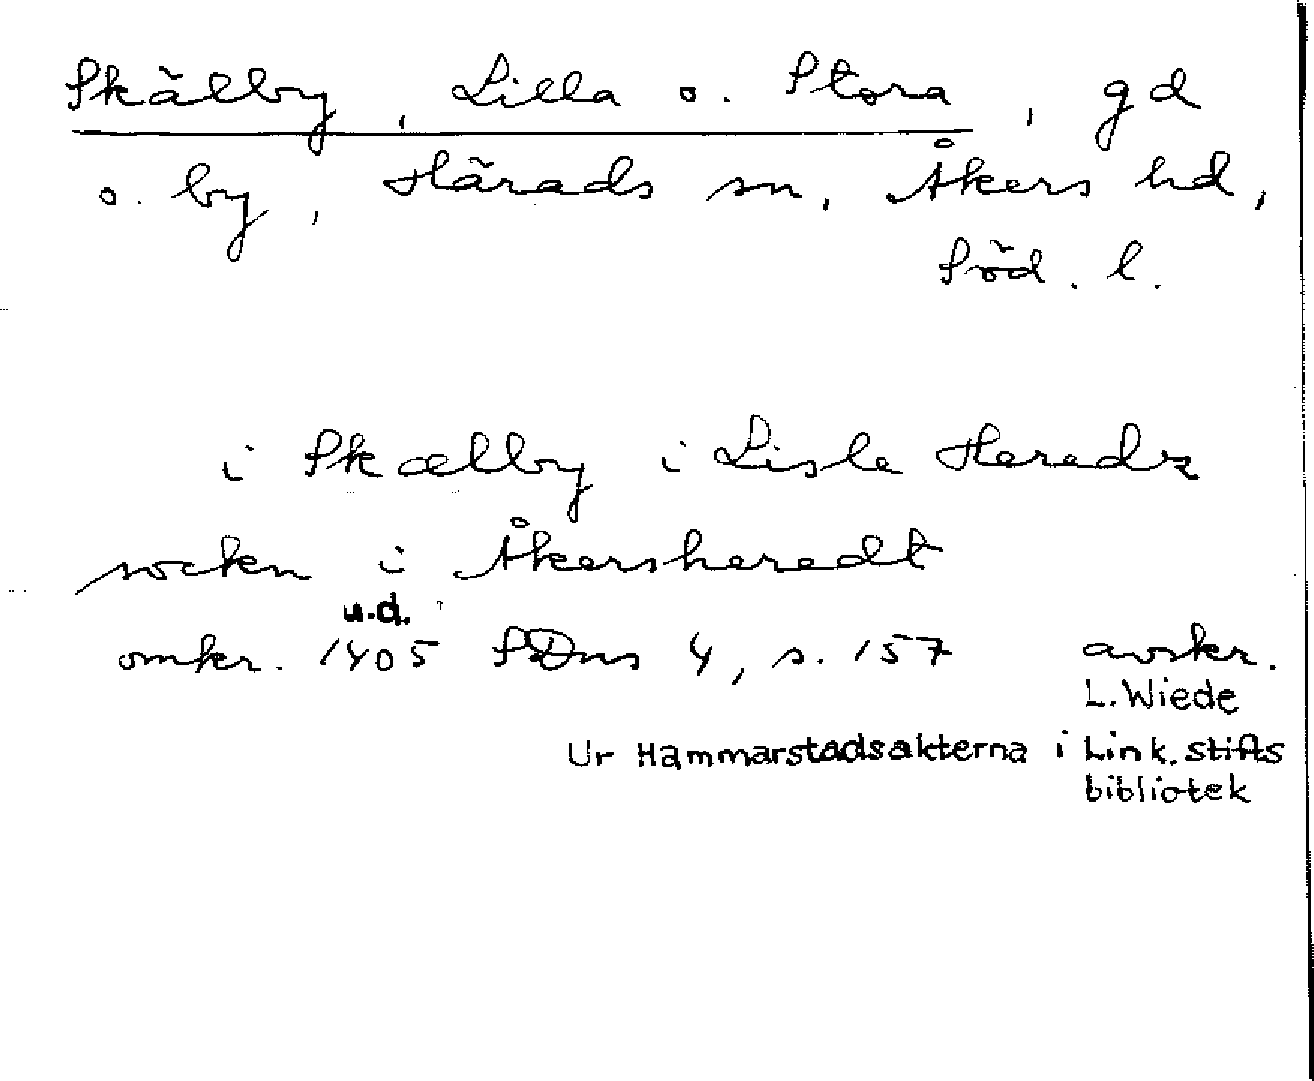 Skälby, Lilla o. Stora, gd
o. by, Härads sn, Åkers hd,
Söd. l.
i Skælby i Lisle Heredz
socken i Åkersheredt
u.d.
omkr. 1405 SDns 4, s. 157 avskr.
L. Wiede
Ur Hammarstadsakterna i Link. stifts
bibliotek